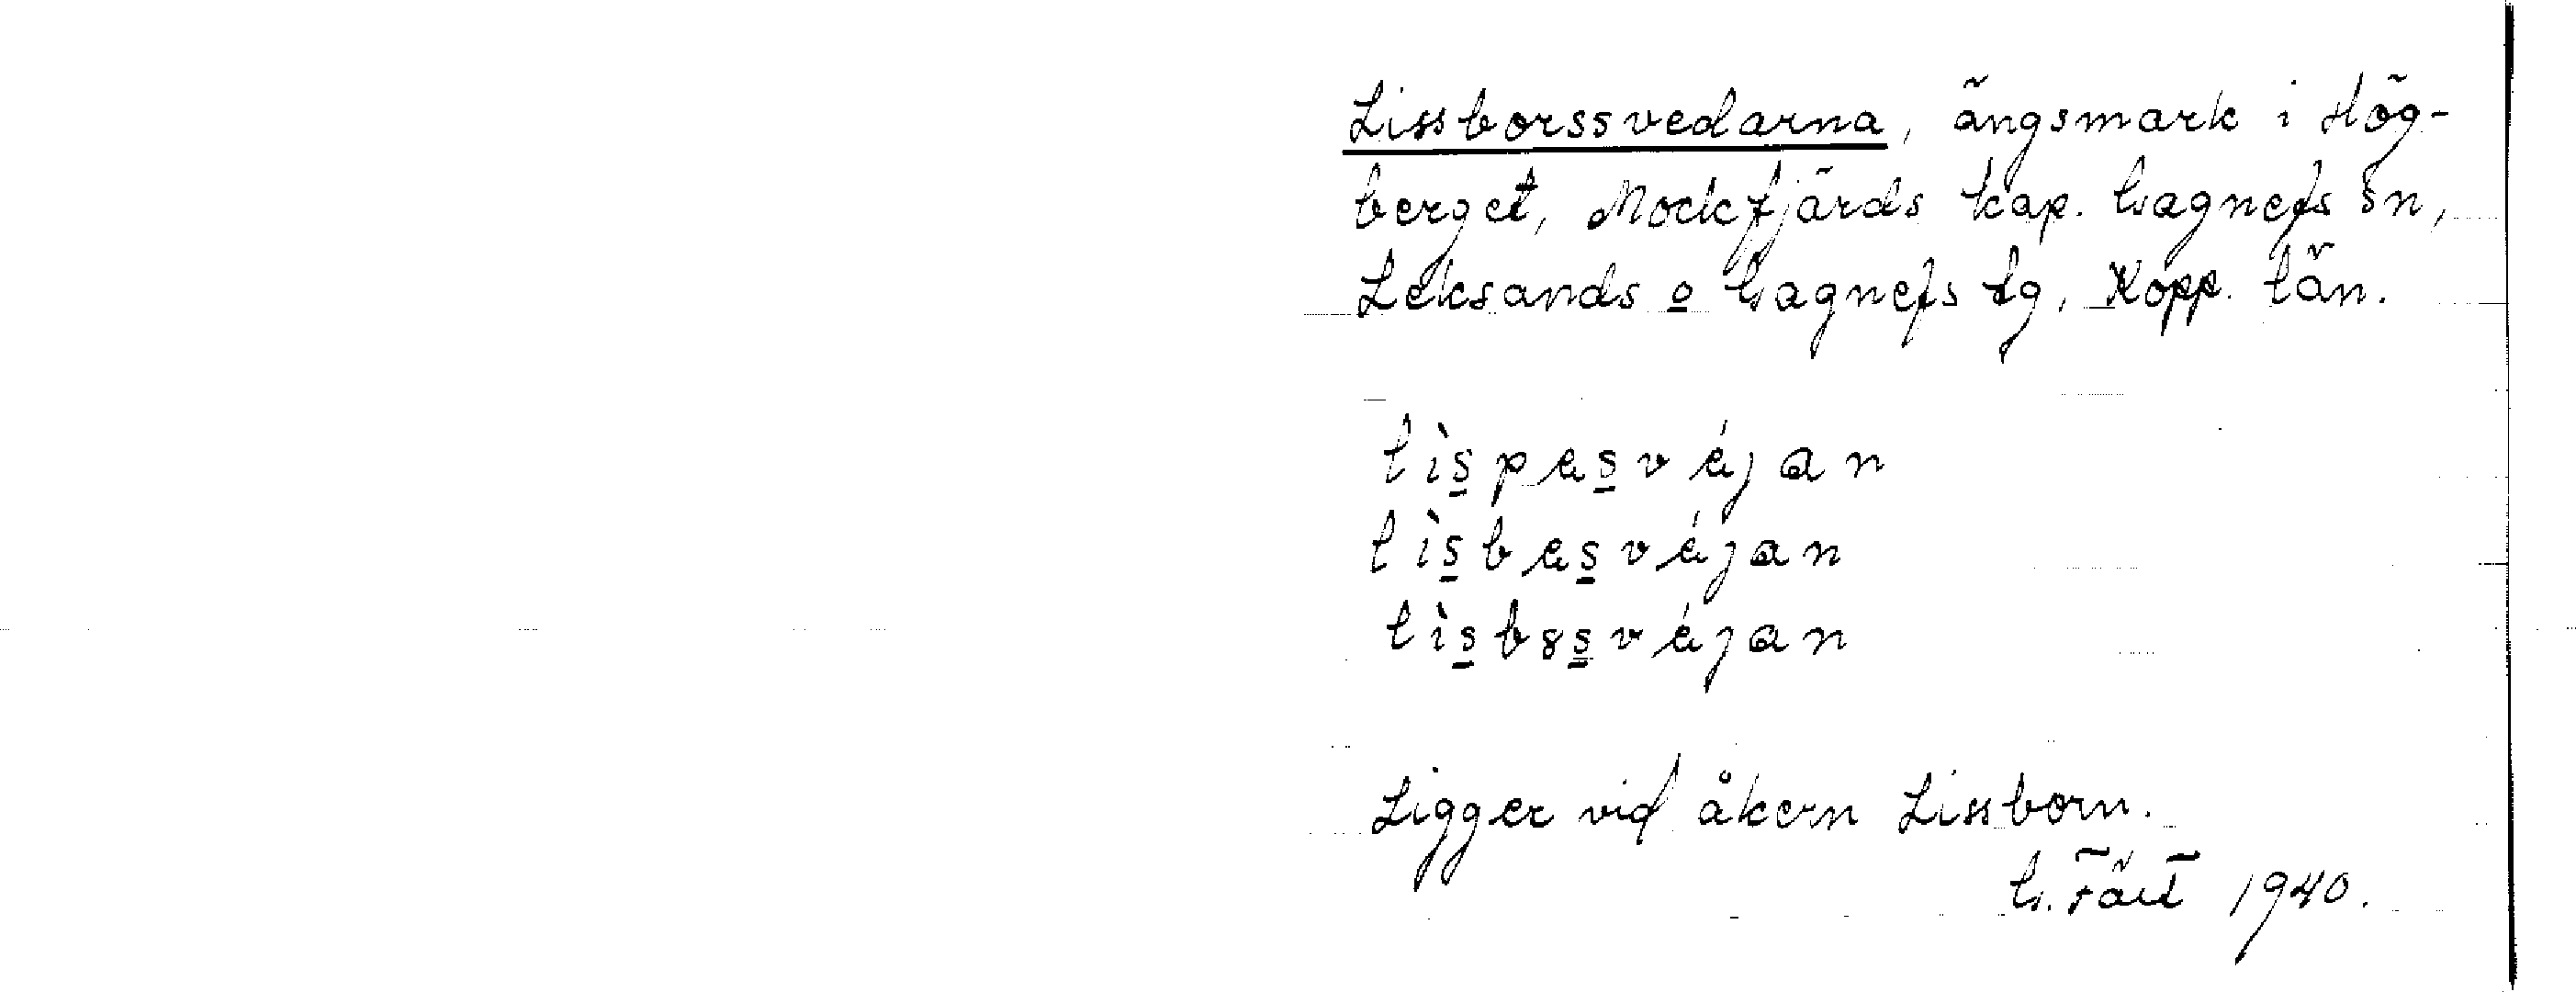 Lissborssvedarna, ängsmark i Hög-
berget, Mockfjärds kap. Gagnefs sn,
Leksands o Gagnefs tg. Kopp. län.
lìspasvájan
lìsbasvájan
lìsb8svájan
Ligger vid åkern Lissborn.
G. Fält 1940.